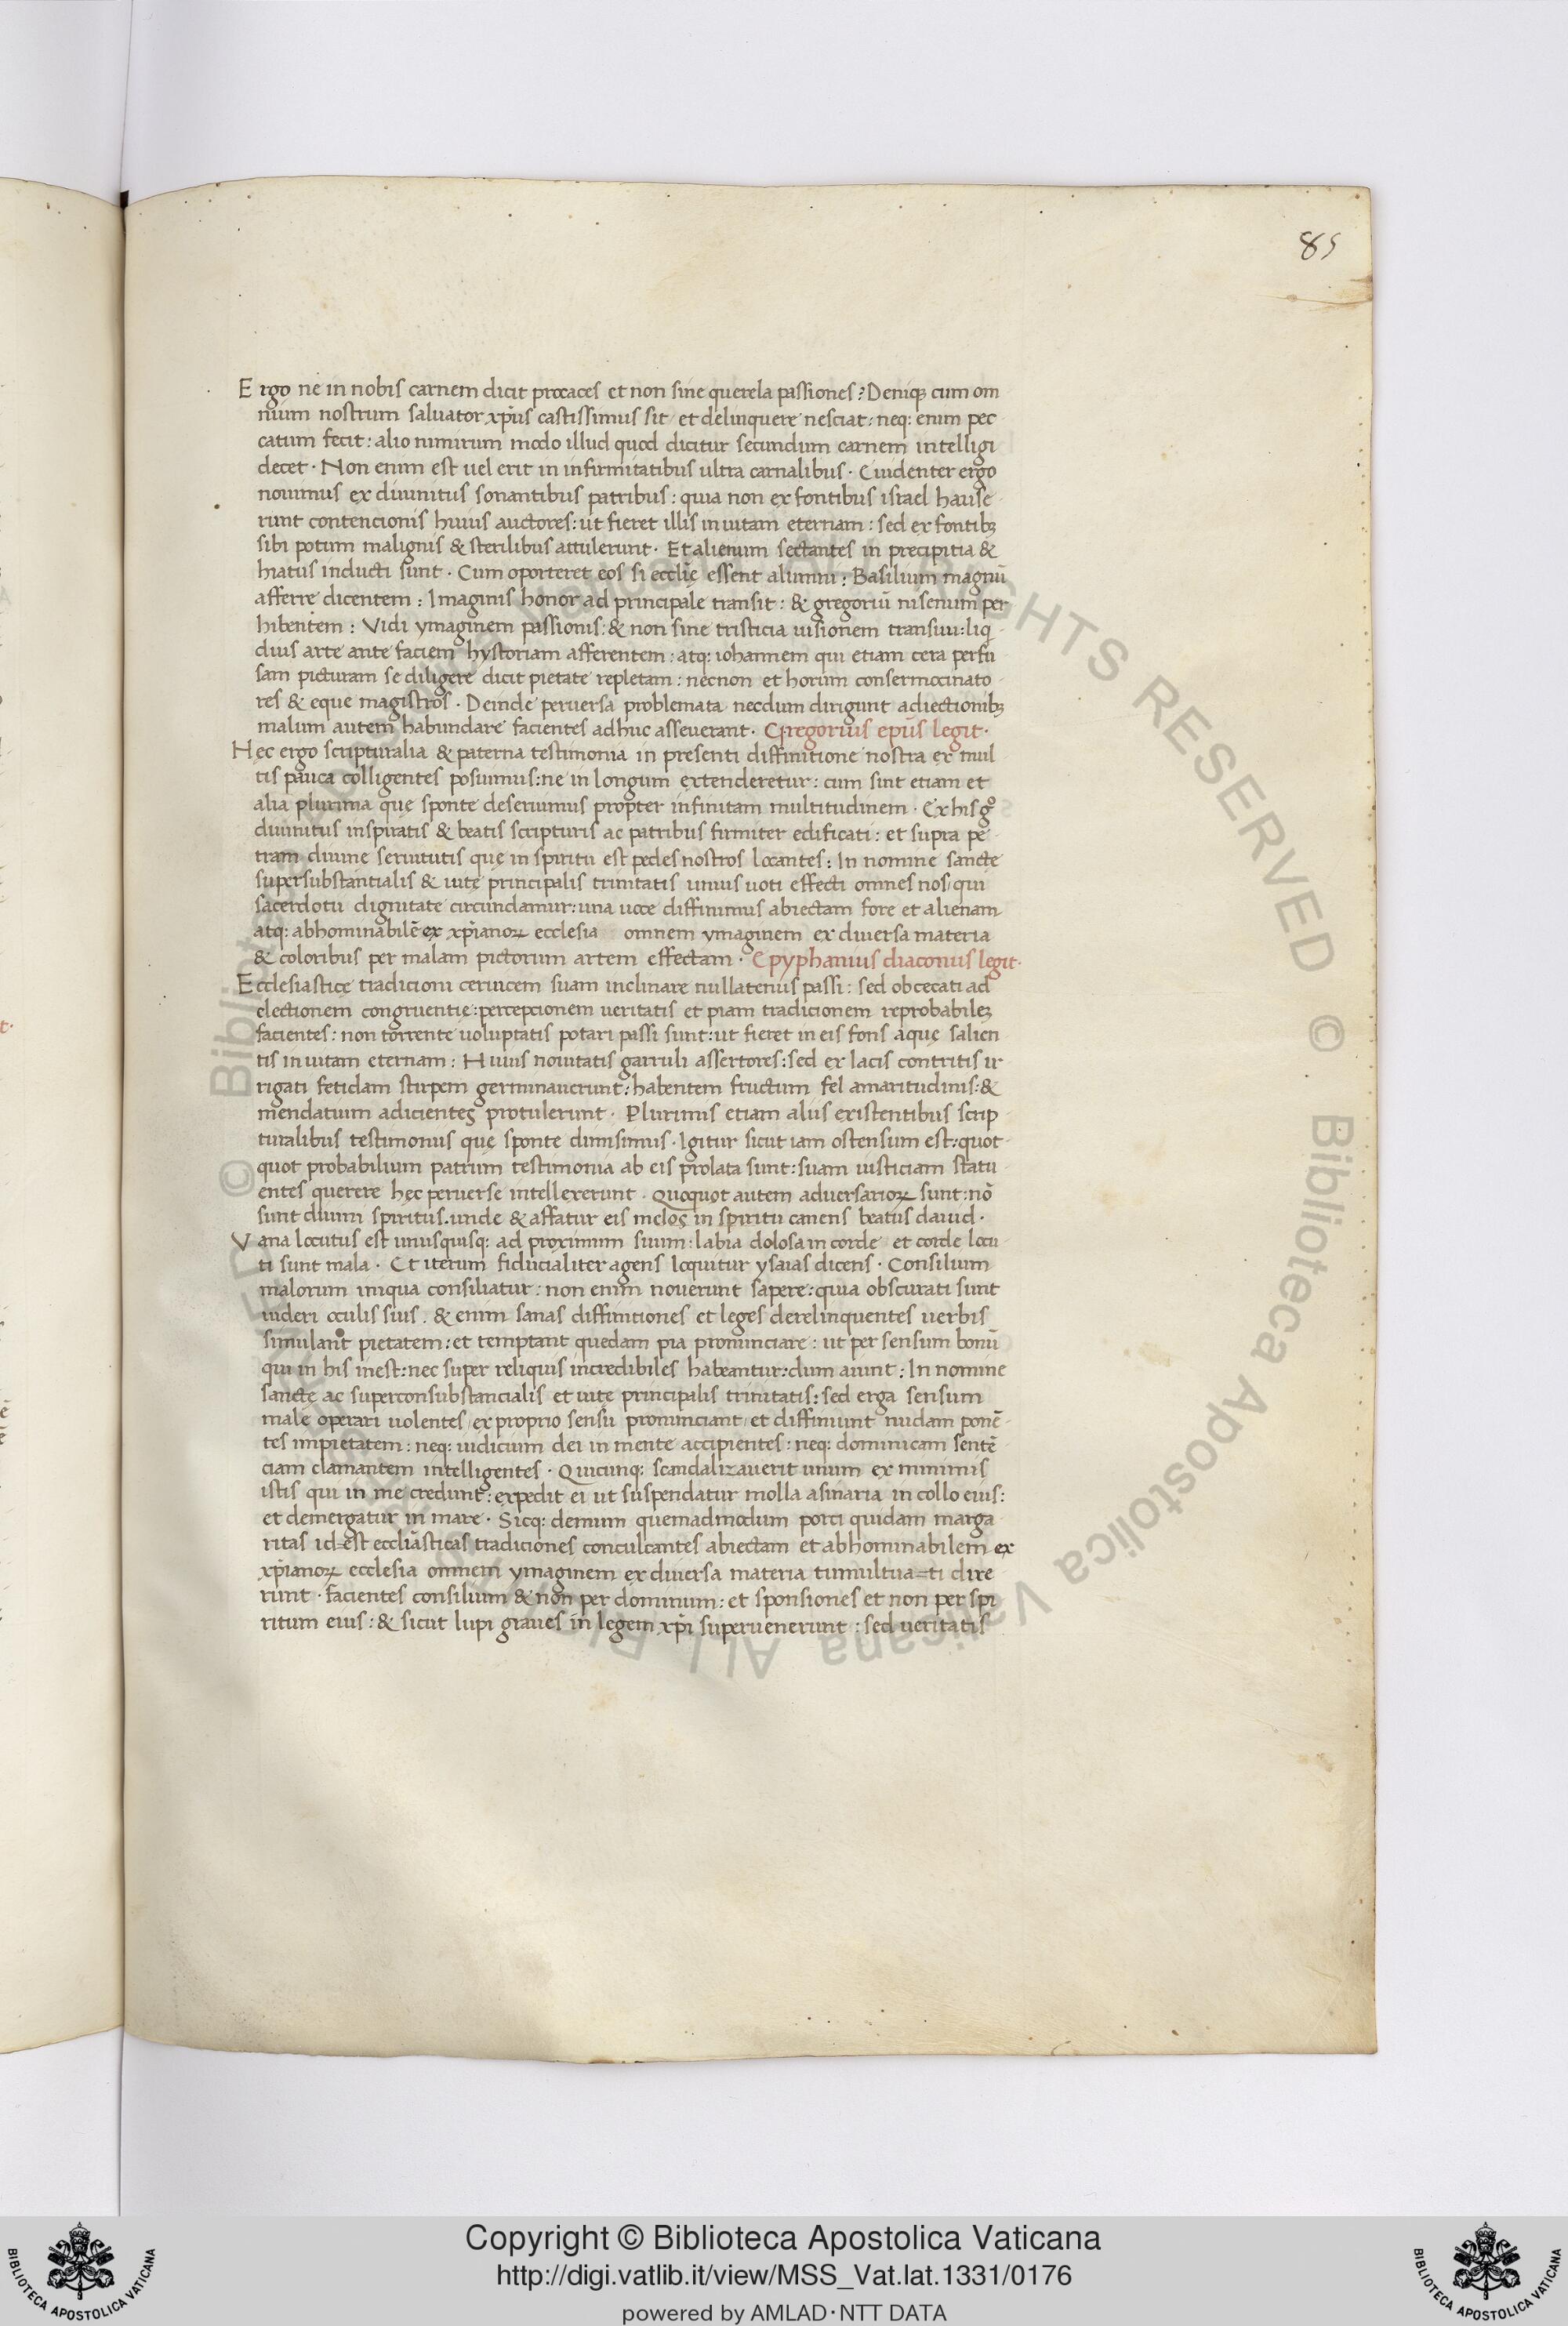 85
Ergo ne in nobis carnem dicit procaces et non sine querela passiones? Deniq; cum om
nium nostrum saluator xp̄us castissimus sit et delinquere nesciat: neq: enim pec
catum fecit: alio nimirum modo illud quod dicitur secundum carnem intelligi
decet · Non enim est uel erit in infirmitatibus ultra carnalibus · Euidenter ergo
nouimus ex diuinitus sonantibus patribus: quia non ex fontibus israel hause
runt contencionis huius auctores: ut fieret illis in uitam eternam: sed ex fontibꝫ
sibi potum malignis & sterilibus attulerunt · Et alienum sectantes in precipitia &
hiatus inducti sunt · Cum oporteret eos si eccl̄ię essent alumni: Basilium magnū
afferre dicentem: Imaginis honor ad principale transit: & gregoriū nisenum per
hibentem: Vidi ymaginem passionis: & non sine tristicia uisionem transiui: liq
dius arte ante faciem hystoriam afferentem: atq: iohannem qui etiam cera perfu
sam picturam se diligere dicit pietate repletam: necnon et horum consermocinato
res & eque magistros · Deinde peruersa problemata necdum dirigunt adiectionibꝫ
malum autem habundare facientes adhuc asseuerant · Gregorius ep̄us legit ·
Hec ergo scripturalia & paterna testimonia in presenti diffinitione nostra ex mul
tis pauca colligentes posuimus: ne in longum extenderetur: cum sint etiam et
alia plurima que sponte deseruimus propter infinitam multitudinem · Ex his gͦ
diuinitus inspiratis & beatis scripturis ac patribus firmiter edificati: et supra pe
tram diuine seruitutis que in spiritu est pedes nostros locantes: In nomine sancte
supersubstantialis & uitę principalis trinitatis unius uoti effecti omnes nos qui
sacerdotii dignitate circundamur: una uoce diffinimus abiectam fore et alienam
atq: abhominabilē ex xp̄ianoꝝ ecclesia omnem ymaginem ex diuersa materia
& coloribus per malam pictorum artem effectam · Epyphanius diaconus legit ·
Ecclesiasticę tradicioni ceruicem suam inclinare nullatenus passi: sed obcecati ad
electionem congruentię: percepcionem ueritatis et piam tradicionem reprobabileꝫ
facientes: non torrente uoluptatis potari passi sunt: ut fieret in eis fons aquę salien
tis in uitam eternam: Huius nouitatis garruli assertores: sed ex lacis contritis ir
rigati fetidam stirpem germinauerunt: habentem fructum fel amaritudinis: &
mendatium adicientes protulerunt · Plurimis etiam aliis existentibus scrip
turalibus testimoniis quę sponte dimisimus · Igitur sicut iam ostensum est: quot
quot probabilium patrum testimonia ab eis prolata sunt: suam iusticiam statu
entes querere hęc peruerse intellexerunt · Quoquot autem aduersarioꝝ sunt: nō
sunt diuini spiritus. unde & affatur eis melos in spiritu canens beatus dauid ·
Vana locutus est unusquisq: ad proximum suum: labia dolosa in corde et corde locu
ti sunt mala · Et iterum fiducialiter agens loquitur ysaias dicens · Consilium
malorum iniqua consiliatur: non enim nouerunt sapere: quia obscurati sunt
uideri oculis suis. & enim sanas diffinitiones et leges derelinquentes uerbis
simulant pietatem: et temptant quedam pia pronunciare: ut per sensum bonū
qui in his inest: nec super reliquis incredibiles habeantur: dum aiunt: In nomine
sancte ac superconsubstancialis et uitę principalis trinitatis: sed erga sensum
male operari uolentes ex proprio sensu pronunciant et diffiniunt nudam ponē
tes impietatem: neq: iudicium dei in mente accipientes: neq: dominicam sentē
ciam clamantem intelligentes · Quicunq: scandalizauerit unum ex minimis
istis qui in me credunt: expedit ei ut suspendatur molla asinaria in collo eius:
et demergatur in mare · Sicq: demum quemadmodum porci quidam marga
ritas id=est eccl̄iasticas tradiciones conculcantes abiectam et abhominabilem ex
xp̄ianoꝝ ecclesia omnem ymaginem ex diuersa materia tumultua=ti dixe
runt · facientes consilium & non per dominum: et sponsiones et non per spi
ritum eius: & sicut lupi graues in legem xp̄i superuenerunt: sed ueritatis
© Biblioteca Apostolica Vaticana ALL RIGHTS RESERVED
Copyright © Biblioteca Apostolica Vaticana
http://digi.vatlib.it/view/MSS_Vat.lat.1331/0176
powered by AMLAD·NTT DATA
BIBLIOTECA APOSTOLICA VATICANA
BIBLIOTECA APOSTOLICA VATICANA